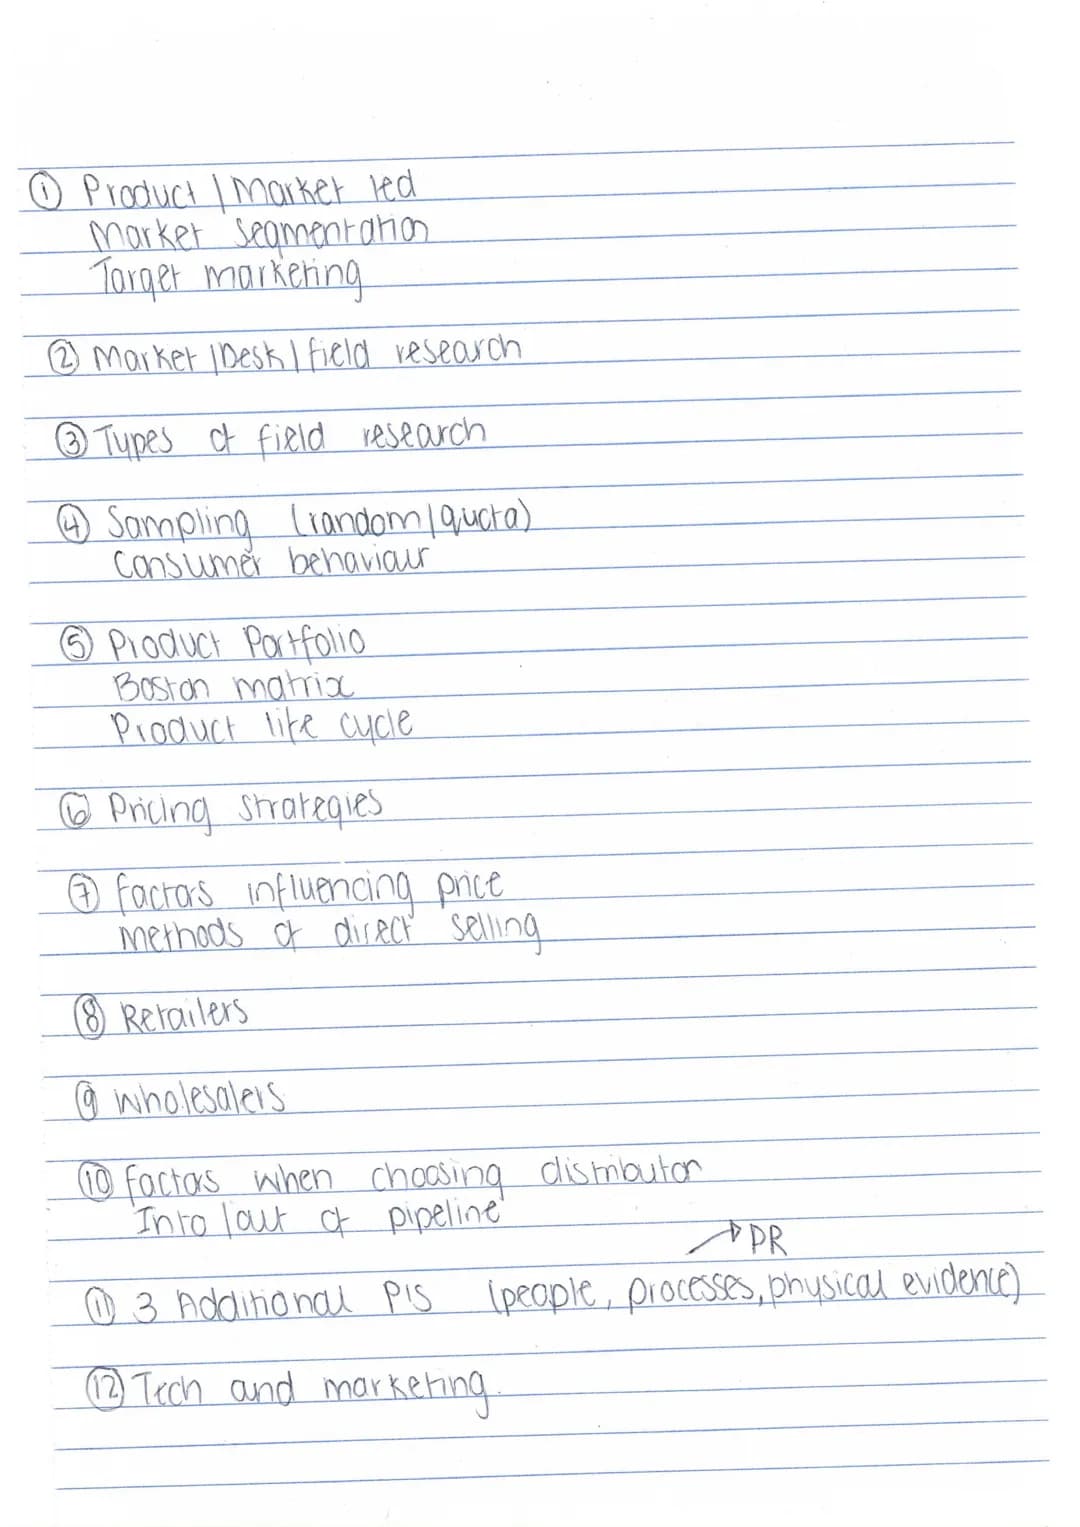 ① Product / Market led
Market segmentation
Target marketing
② Market / Desk / field research
③ Types of field research
④ Sampling (random / quota)
Consumer behaviour
⑤ Product Portfolio
Boston matrix
Product life cycle
⑥ Pricing strategies
⑦ factors influencing price
Methods of direct selling
⑧ Retailers
⑨ Wholesalers
⑩ factors when choosing distributor
Into / out of pipeline
→ PR
⑪ 3 Additional P's (people, processes, physical evidence)
⑫ Tech and marketing.